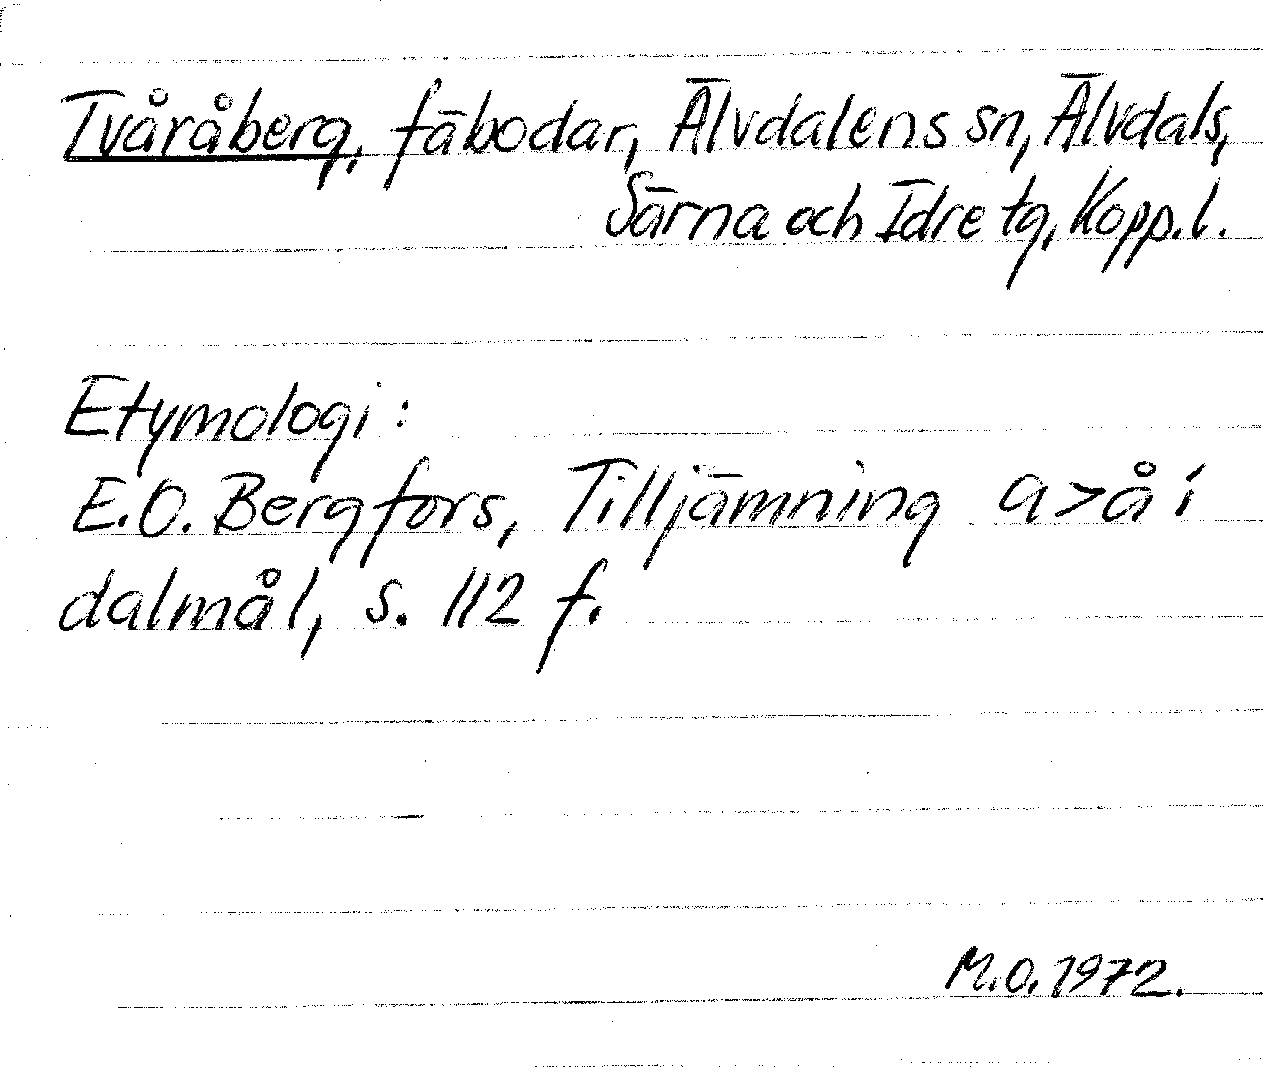 Tvåråberg, fäbodar, Älvdalens sn, Älvdals,
Särna och Idre tg, Kopp. l.
Etymologi:
E.O. Bergfors, Tilljämning a>å i
dalmål, s. 112 f.
M.O. 1972.